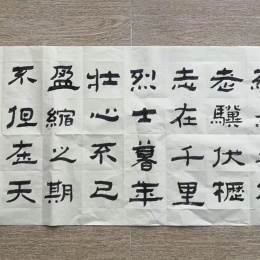 老骥伏櫪
志在千里
烈士暮年
壮心不已
盈縮之期
不但在天